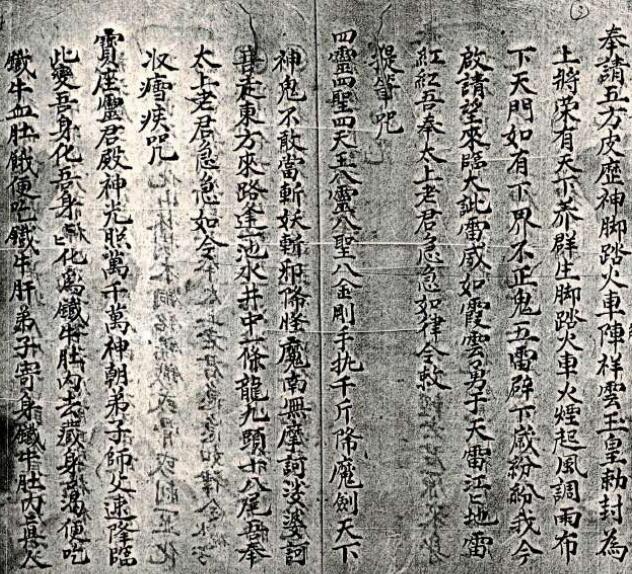 奉請五方皮厯神脚踏火車陣祥雲玉皇勅封為
上將荣有天下芥群生脚踏火車火煙起風調雨布
下天門如有下界不正鬼五雷辟下歳紛紛我今
啟請望來臨大訨雷威如霞雲男于天雷江上地雷
紅紅吾奉太上老君急急如律令敕
提筆咒
四靈四聖四天王八靈八聖八金剛手执千斤降魔劍天下
神鬼不敢當斬妖輯邪除怪魔南無摩訶娑婆訶
其走東方來路逢池水井中一條龍九頭十八尾吾奉
太上老君急急如令
収瘄疾咒
寶座靈君殿神光照萬千萬神朝弟子師父速降臨
此变吾身化吾身上化為鐵牛肚内去藏身莴便吃
鐵牛血肚餓便吃鐵牛肝弟子寄身鐵牛肚内三昧火